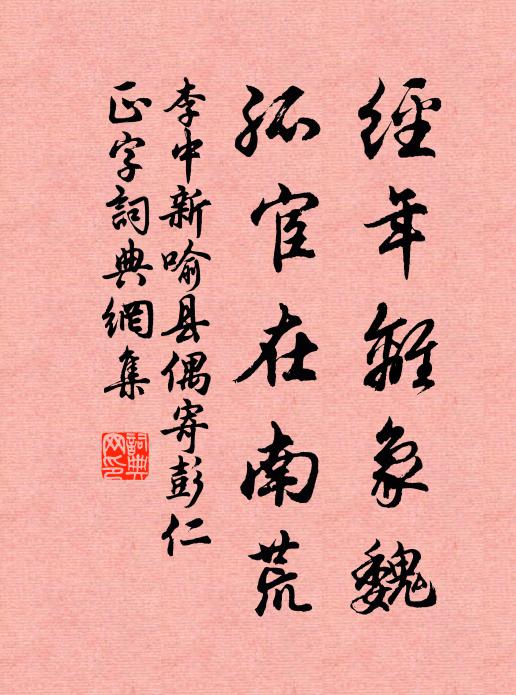 經年離象魏
孤宦在南荒
李中新喻县偶寄彭仁
正字詞典網集
詞典网印